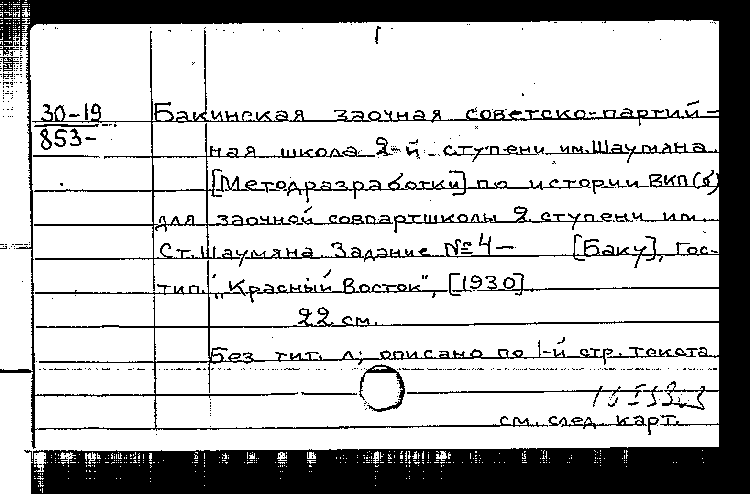 30-19 Бакинская заочная советско-партий-
853-
ная школа 2-й ступени им. Шаумяна.
[Методразработки] по истории ВКП(б)
для заочной совпартшколы 2 ступени им.
Ст. Шаумяна. Задание № 4 - [Баку], Гос-
тип. "Красный Восток", [1930].
22 см.
Без тит. л; описано по 1-й стр. текста
см. след. карт.